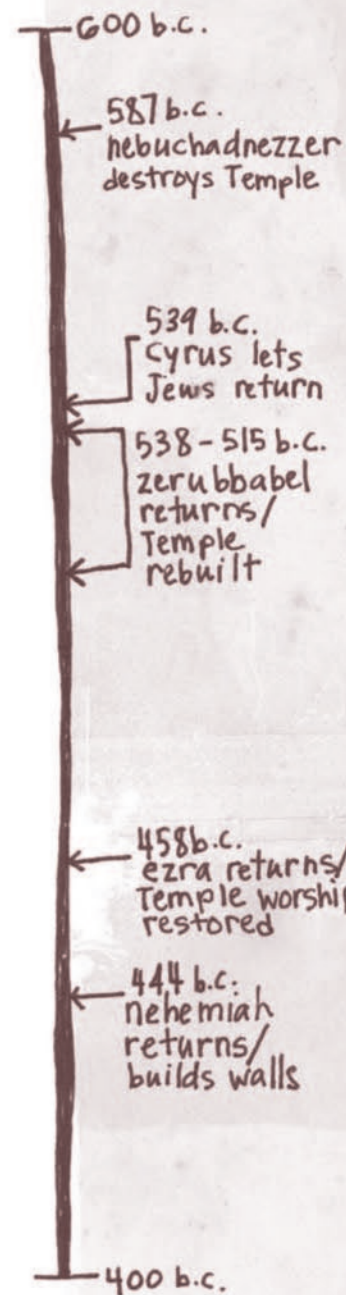 600 b.c.
587 b.c.
nebuchadnezzer
destroys Temple
539 b.c.
Cyrus lets
Jews return
538-515 b.c.
zerubbabel
returns/
Temple
rebuilt
458 b.c.
ezra returns/
Temple worship
restored
444 b.c.
nehemiah
returns/
builds walls
400 b.c.